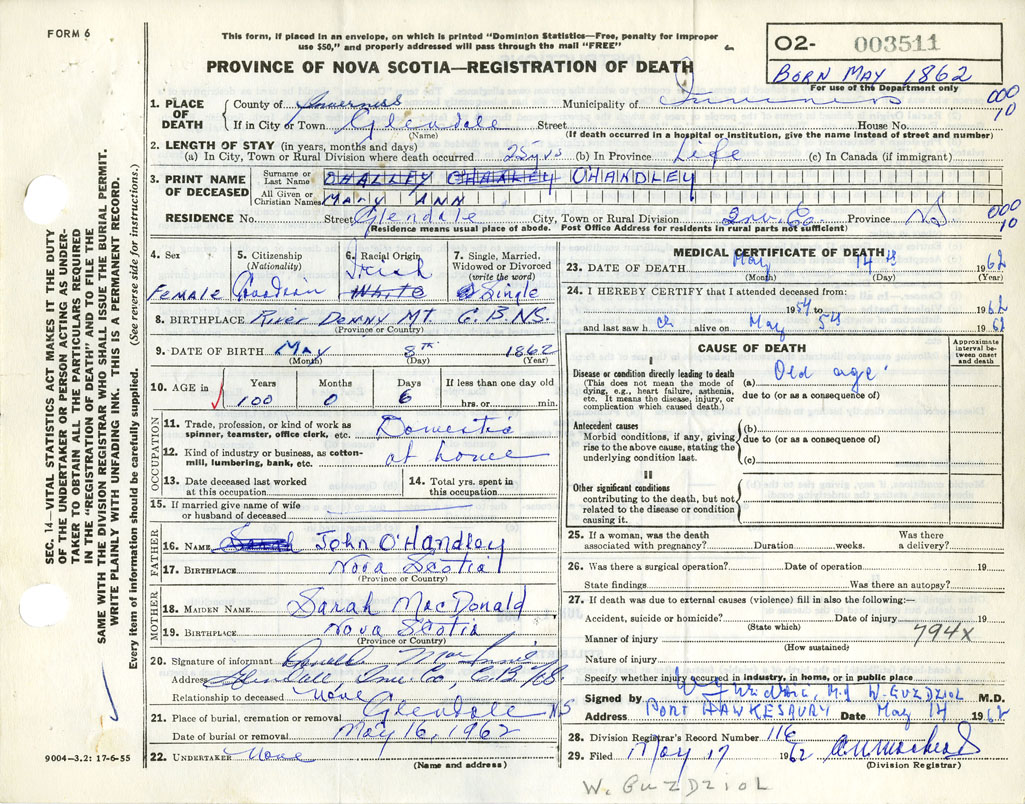 FORM 6
This form, if placed in an envelope, on which is printed "Dominion Statistics—Free, penalty for improper
use $50," and properly addressed will pass through the mail "FREE"
PROVINCE OF NOVA SCOTIA—REGISTRATION OF DEATH
O2- 003511
BORN MAY 1862
For use of the Department only
000
10
1. PLACE OF DEATH County of Inverness Municipality of Inverness
If in City or Town Glendale Street House No.
(Name) (If death occurred in a hospital or institution, give the name instead of street and number)
2. LENGTH OF STAY (in years, months and days)
(a) In City, Town or Rural Division where death occurred 25 yrs (b) In Province Life (c) In Canada (if immigrant)
3. PRINT NAME OF DECEASED Surname or Last Name OHALLEY OHANDLEY
All Given or Christian Names MARY ANN
RESIDENCE No. Street Glendale City, Town or Rural Division Inv. Co. Province NS
000
10
(Residence means usual place of abode. Post Office Address for residents in rural parts not sufficient)
4. Sex 5. Citizenship (Nationality) 6. Racial Origin 7. Single, Married, Widowed or Divorced (write the word)
Irish
Female Canadian White Single
8. BIRTHPLACE River Denny Mt. C.B.N.S.
(Province or Country)
9. DATE OF BIRTH May 8th 1862
(Month) (Day) (Year)
10. AGE in Years Months Days If less than one day old
100 0 6 hrs. or min.
OCCUPATION
11. Trade, profession, or kind of work as spinner, teamster, office clerk, etc. Domestic
12. Kind of industry or business, as cotton-mill, lumbering, bank, etc. at home
13. Date deceased last worked at this occupation
14. Total yrs. spent in this occupation
15. If married give name of wife or husband of deceased
FATHER
16. NAME Sarah John O'Handley
17. BIRTHPLACE Nova Scotia
(Province or Country)
MOTHER
18. MAIDEN NAME Sarah MacDonald
19. BIRTHPLACE Nova Scotia
(Province or Country)
20. Signature of informant Donald
Address Glendale Inv. Co., C.B. NS
Relationship to deceased None
21. Place of burial, cremation or removal Glendale NS
Date of burial or removal May 16, 1962
22. UNDERTAKER None
(Name and address)
9004—3.2: 17-6-55
SEC. 14—VITAL STATISTICS ACT MAKES IT THE DUTY
OF THE UNDERTAKER OR PERSON ACTING AS UNDER-
TAKER TO OBTAIN ALL THE PARTICULARS REQUIRED
IN THE "REGISTRATION OF DEATH" AND TO FILE THE
SAME WITH THE DIVISION REGISTRAR WHO SHALL ISSUE THE BURIAL PERMIT.
WRITE PLAINLY WITH UNFADING INK. THIS IS A PERMANENT RECORD.
Every item of information should be carefully supplied. (See reverse side for instructions.)
MEDICAL CERTIFICATE OF DEATH
23. DATE OF DEATH May 14th 1962
(Month) (Day) (Year)
24. I HEREBY CERTIFY that I attended deceased from:
1954 to 1962
and last saw h er alive on May 5th 1962
CAUSE OF DEATH
Approximate interval between onset and death
I
Disease or condition directly leading to death
(This does not mean the mode of dying, e.g., heart failure, asthenia, etc. It means the disease, injury, or complication which caused death.)
(a) Old age
due to (or as a consequence of)
Antecedent causes
Morbid conditions, if any, giving rise to the above cause, stating the underlying condition last.
(b)
due to (or as a consequence of)
(c)
II
Other significant conditions
contributing to the death, but not related to the disease or condition causing it.
25. If a woman, was the death associated with pregnancy? Duration weeks. Was there a delivery?
26. Was there a surgical operation? Date of operation 19
State findings Was there an autopsy?
27. If death was due to external causes (violence) fill in also the following:—
Accident, suicide or homicide? Date of injury 19
(State which)
794X
Manner of injury
(How sustained)
Nature of injury
Specify whether injury occurred in industry, in home, or in public place
Signed by W. GUZDZIOL M.D.
Address PORT HAWKESBURY Date May 14 1962
28. Division Registrar's Record Number 116
29. Filed May 17 1962
(Division Registrar)
W. GUZDZIOL